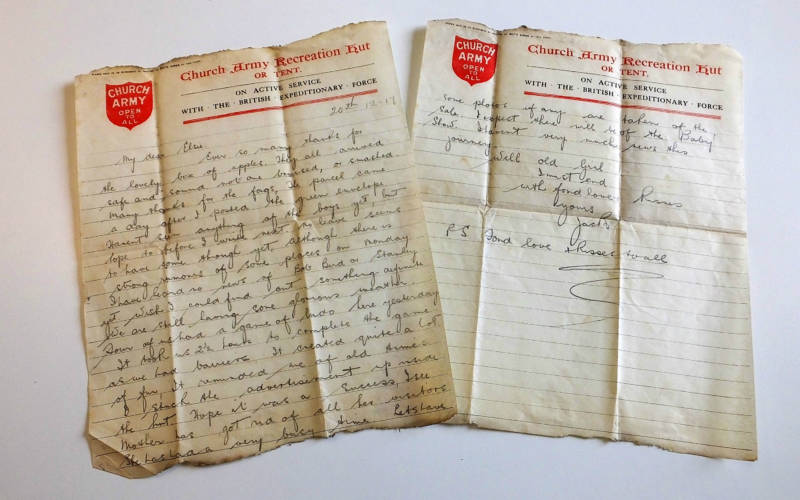 CHURCH
ARMY
OPEN
TO
ALL
Church Army Recreation Hut
OR TENT.
ON ACTIVE SERVICE
WITH · THE · BRITISH · EXPEDITIONARY · FORCE
20th 12-17
My dear Elsie Ever so many thanks for
the lovely box of apples. They all arrived
safe and sound not one bruised, or smashed
Many thanks for the fags, the parcel came
a day after I posted the green envelope
Havent seen anything of the boys yet but
hope to before I write next. No leave seems
to have come though yet although there is
strong rumours of some places on Monday
I have heard no news of Bob Bird or Stanley
yet Wish I could find out something definite
We are still having some glorious weather
Four of us had a game of Ludo here yesterday
It took us 2½ hours to complete the game
as we had barriers It created quite a lot
of fun, It reminded me of old times
I stuck the advertisement up inside
the hut Hope it was a success, I see
Mother has got rid of all her visitors
She has had a very busy time Lets have
CHURCH
ARMY
OPEN
TO
ALL
Church Army Recreation Hut
OR TENT.
ON ACTIVE SERVICE
WITH · THE · BRITISH · EXPEDITIONARY · FORCE
some photos if any are taken of the
Sale. I expect there will be of the Baby
Show. Havent very much news this
journey.
Well old Girl
I must end
with fond love Kisses
yours
Jack
P.S Fond love & kisses to all